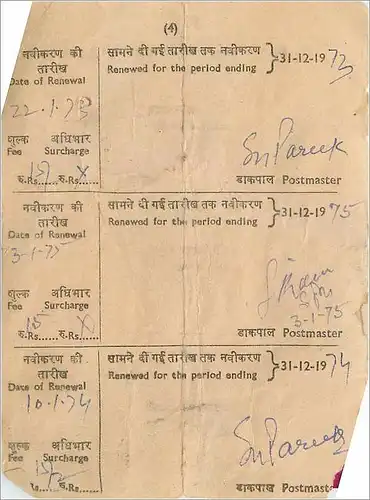 (4)
नवीकरण की सामने दी गई तारीख तक नवीकरण
तारीख Renewed for the period ending } 31-12-1973
Date of Renewal
22.1.73
शुल्क अधिभार
Fee Surcharge
रु.Rs. 15/ रु.Rs. X डाकपाल Postmaster
नवीकरण की सामने दी गई तारीख तक नवीकरण
तारीख Renewed for the period ending } 31-12-1975
Date of Renewal
3-1-75
शुल्क अधिभार
Fee Surcharge
3-1-75
रु.Rs. 15 रु.Rs. X डाकपाल Postmaster
नवीकरण की सामने दी गई तारीख तक नवीकरण
तारीख Renewed for the period ending } 31-12-1974
Date of Renewal
10.1.74
शुल्क अधिभार
Fee Surcharge
Rs. रु.Rs. डाकपाल Postmaste